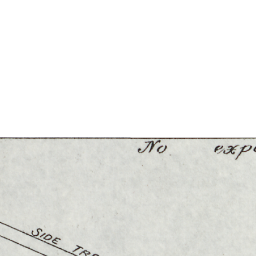 No expo
SIDE TRA